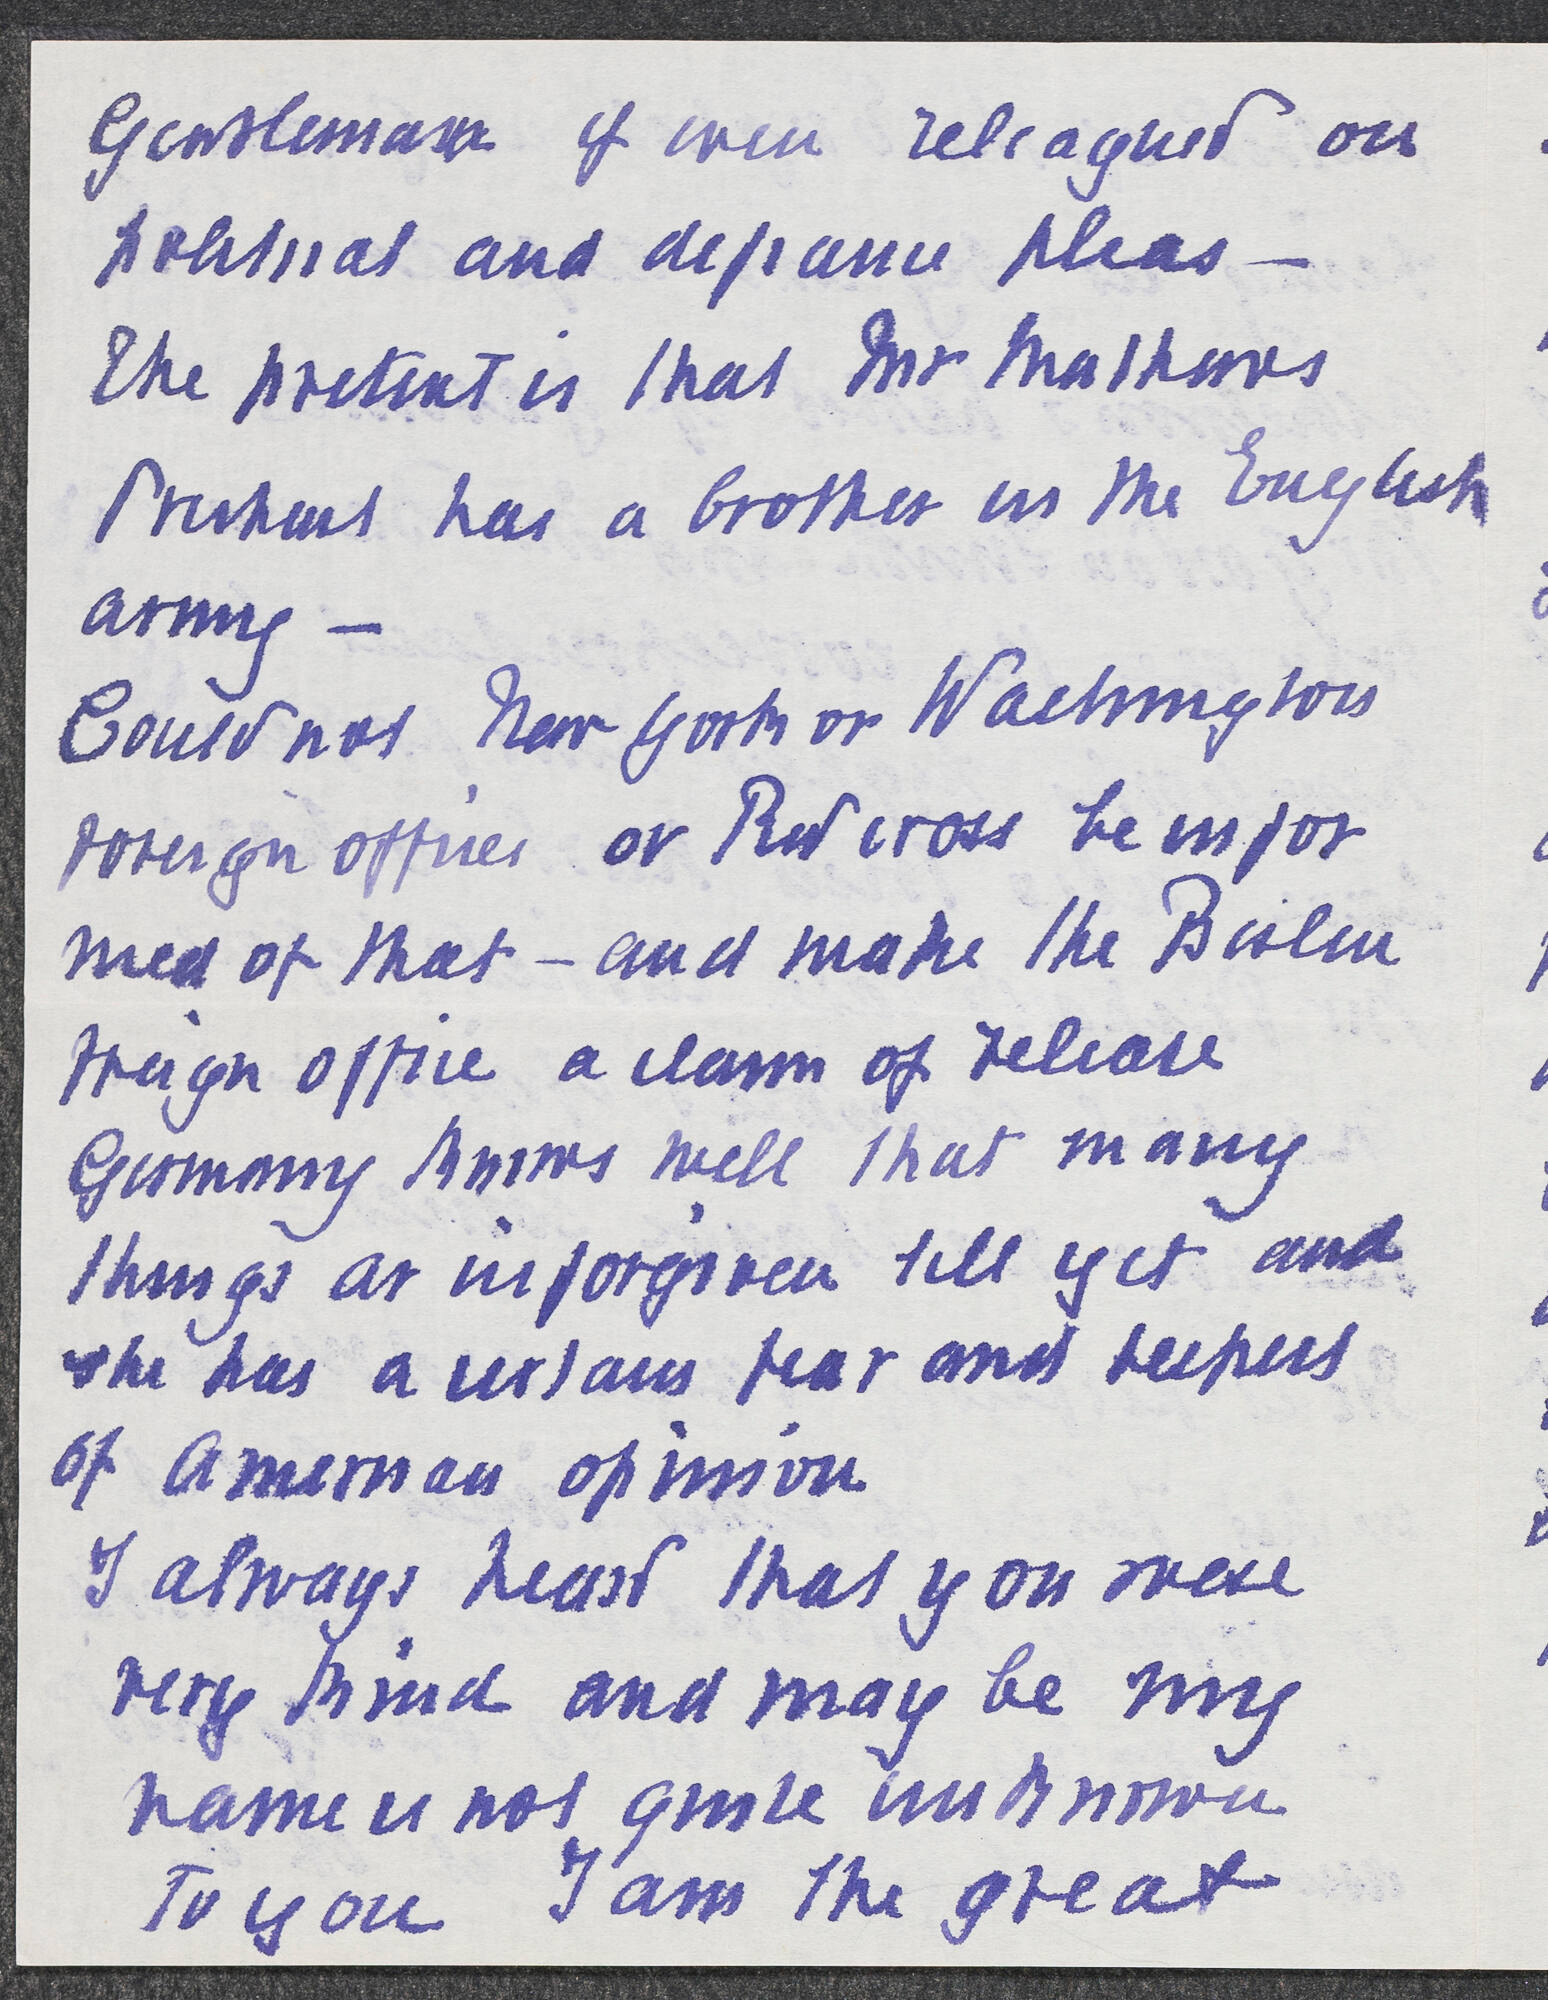 Gentleman if even releagued on
political and defiance pleas —
The pretext is that Mr Mathews
Prichard has a brother in the English
army —
Could not New York or Washington
foreign offices or Red cross be infor
med of that — and make the Berlin
freign office a claim of release
Germany knows well that many
things ar inforgiven till yet and
she has a certain fear and respect
of American opinion
I always heard that you were
very kind and may be my
name is not quite unknown
To you I am the great